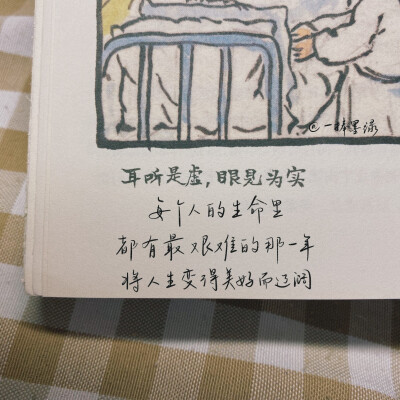 @一抹墨渌
耳听是虚,眼见为实
每个人的生命里
都有最艰难的那一年
将人生变得美好而辽阔